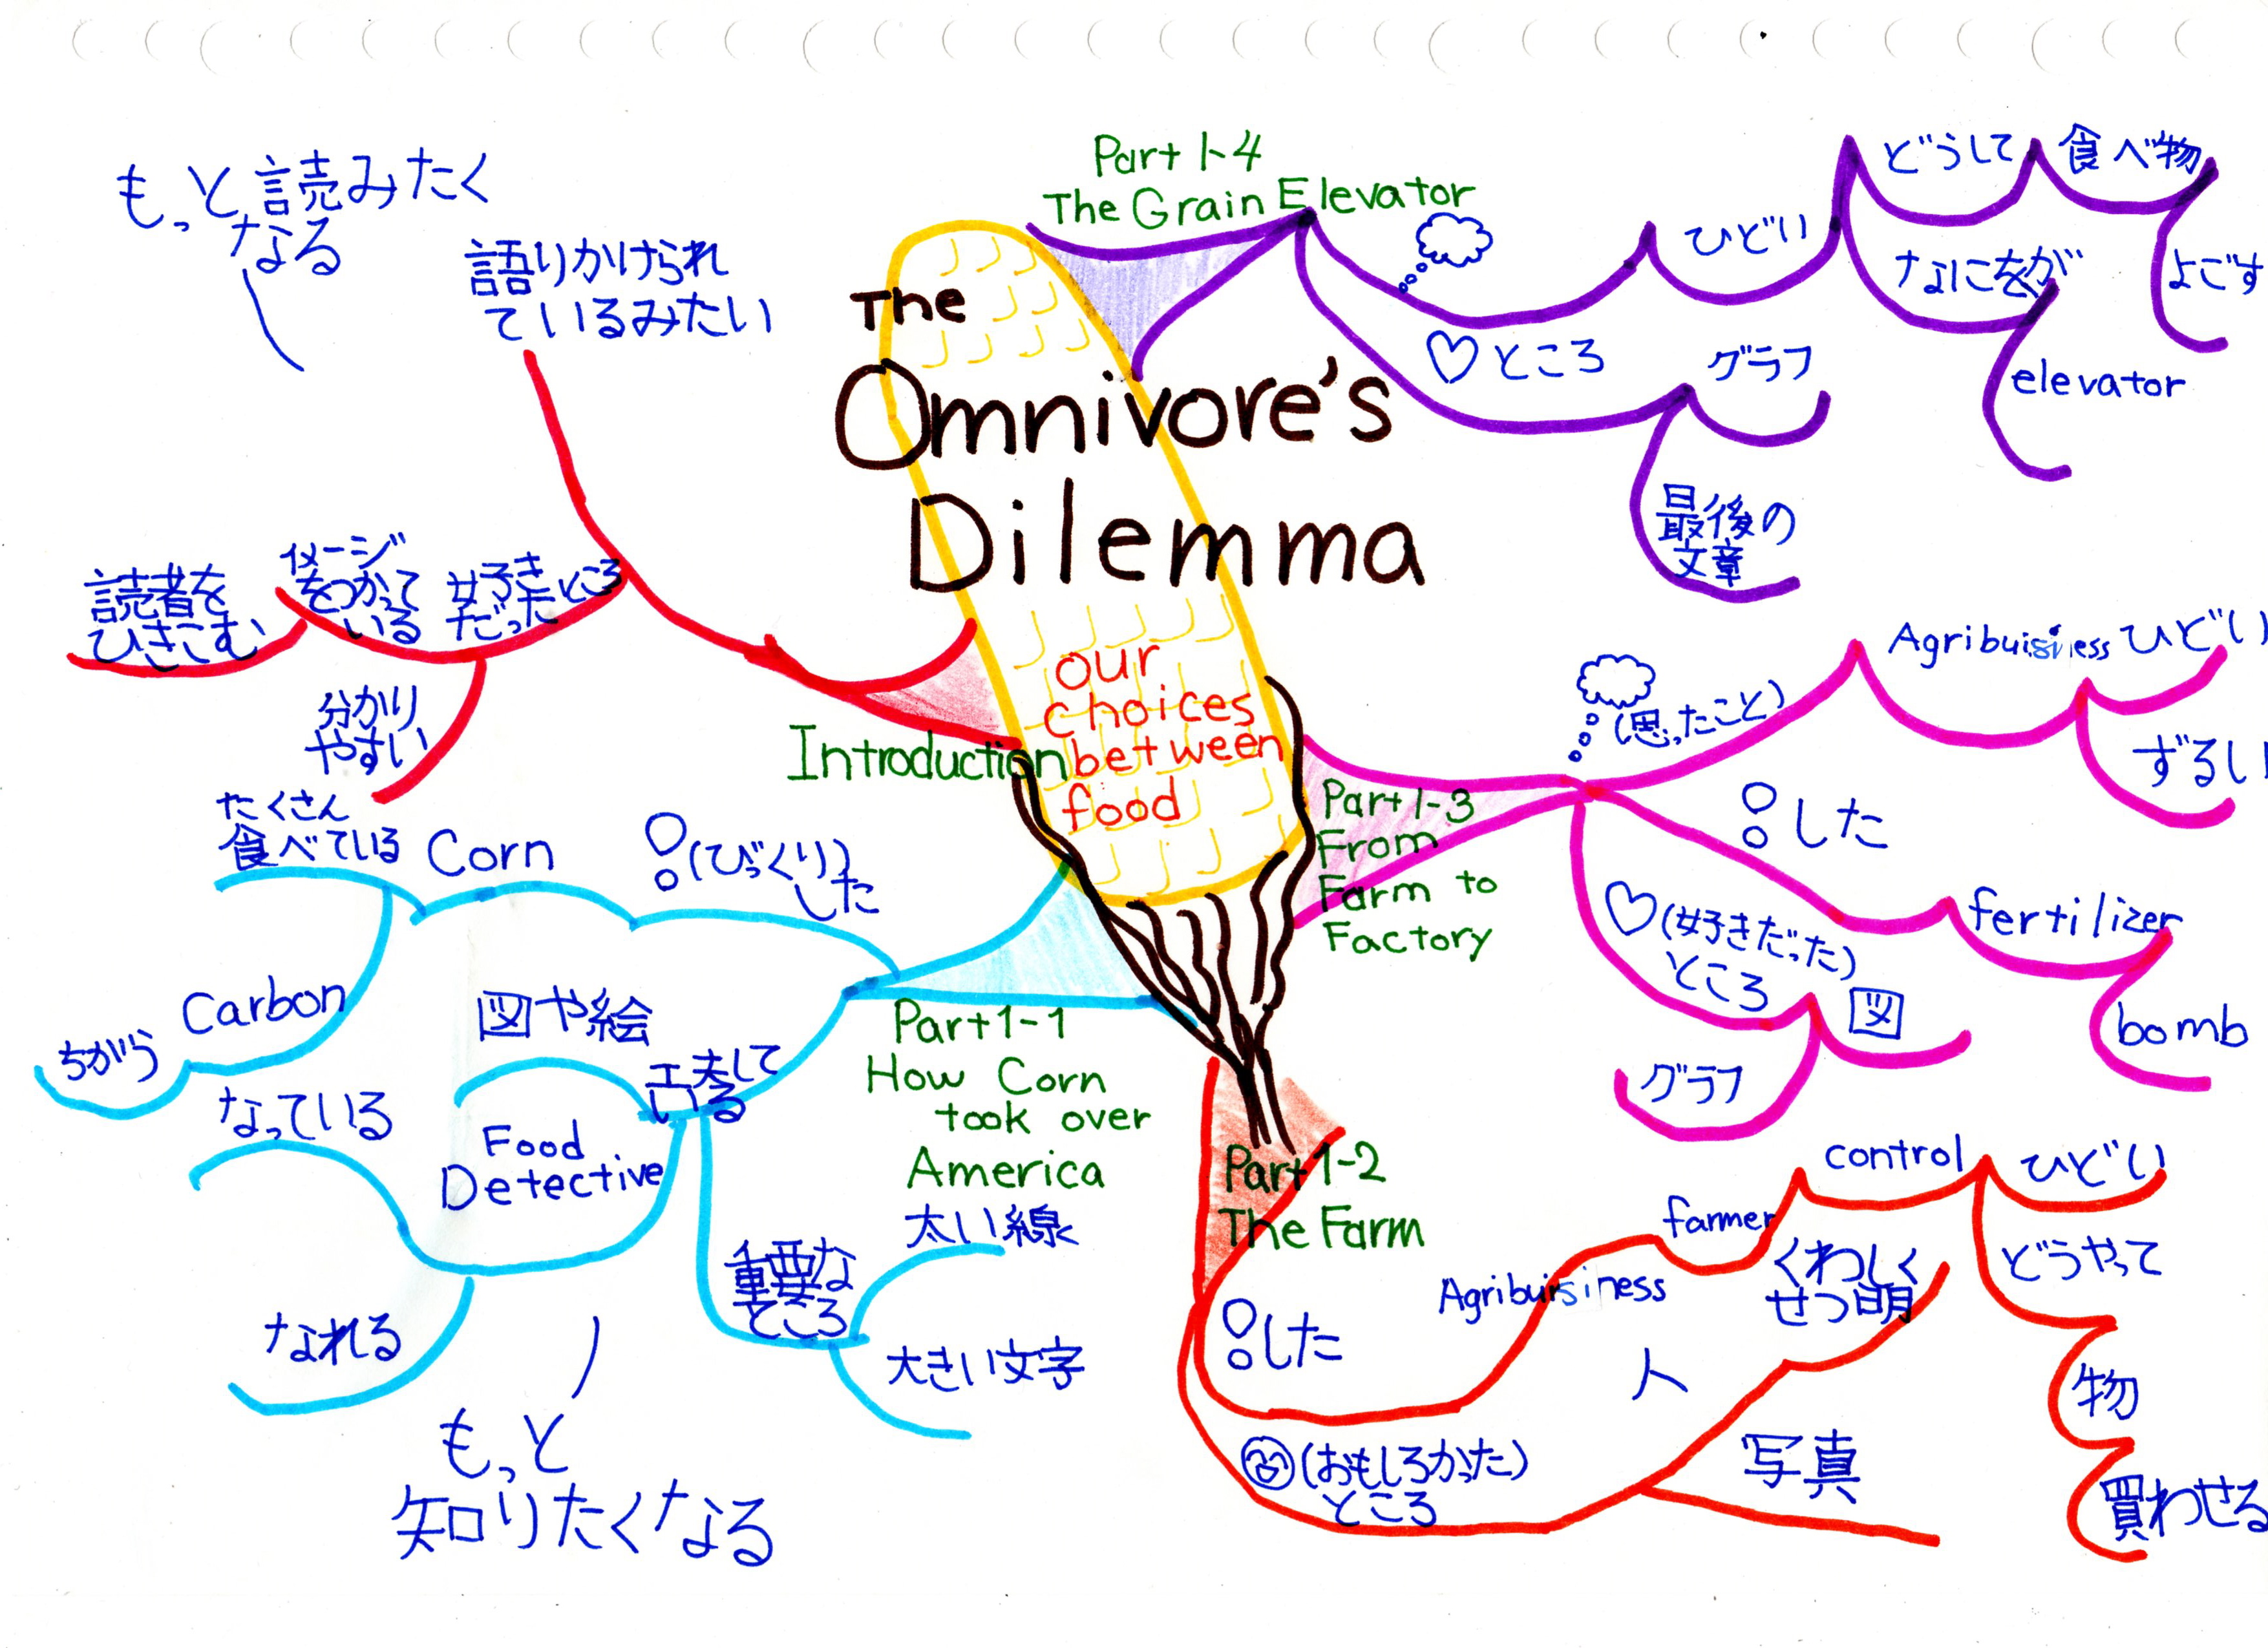 The
Omnivore's
Dilemma
our
choices
between
food
Part 1-4
The Grain Elevator
ひどい
どうして
食べ物
よごす
なにをが
elevator
♡ところ
グラフ
最後の
文章
Part 1-3
From
Farm to
Factory
(思ったこと)
Agribuisiness
ひどい
ずるい
!した
fertilizer
bomb
♡(好きだった)
ところ
図
グラフ
Part 1-2
The Farm
!した
Agribuisiness
farmer
control
ひどい
どうやって
物
買わせる
(おもしろかった)
ところ
人
くわしく
せつ明
写真
Part 1-1
How Corn
took over
America
!(びっくり)
した
Corn
たくさん
食べている
Carbon
ちがう
工夫して
いる
図や絵
Food
Detective
なっている
なれる
重要な
ところ
太い線
大きい文字
もっと
知りたくなる
Introduction
語りかけられ
ているみたい
もっと読みたく
なる
好き
だったところ
イメージ
をつかって
いる
読者を
ひきこむ
分かり
やすい